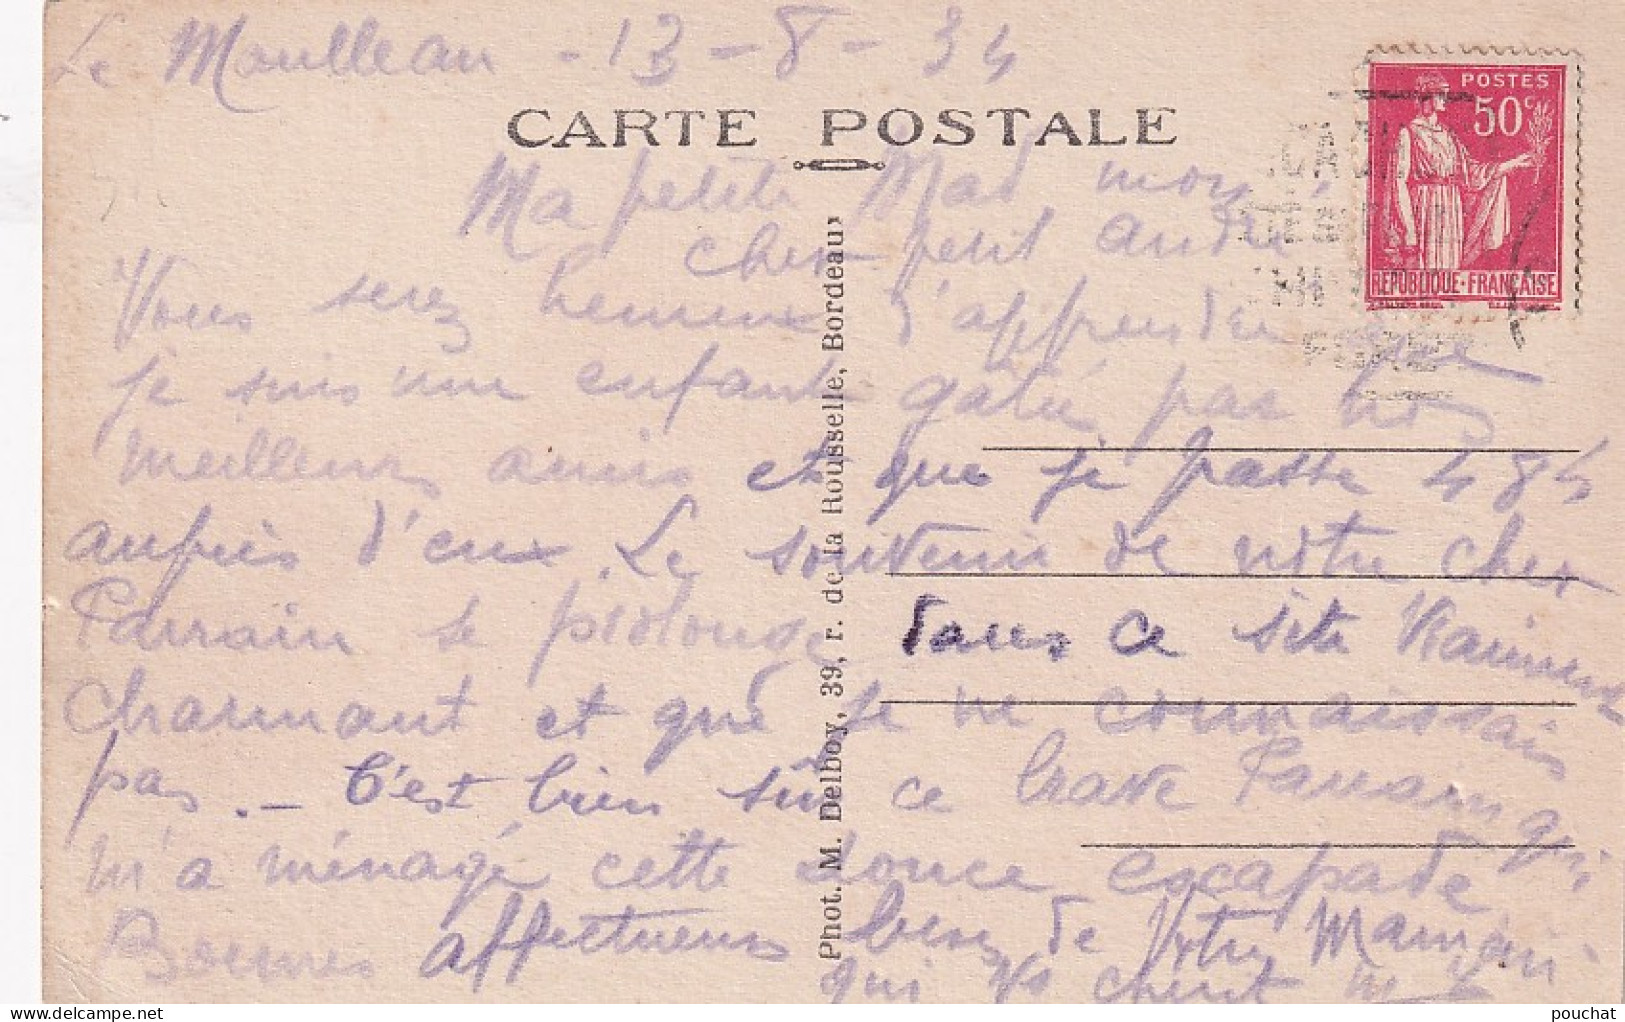 Le Moulleau - 13 - 8 - 34
CARTE POSTALE
POSTES
50c
REPUBLIQUE-FRANÇAISE
Ma petite Mad, mon
cher petit André
Vous serez heureux d'apprendre que
je suis une enfant gâtée par nos
meilleurs amis et que je passe 48h
auprès d'eux. Le souvenir de notre cher
Parrain se prolonge dans ce site vraiment
charmant et que je ne connaissais
pas. - C'est bien sûr ce brave Parrain qui
m'a ménagé cette douce escapade.
Bonnes affectueuses bises de Votre Maman
qui vs chérit
Phot. M. Delboy, 39, r. de la Rousselle, Bordeaux
pouchat
delcampe.net